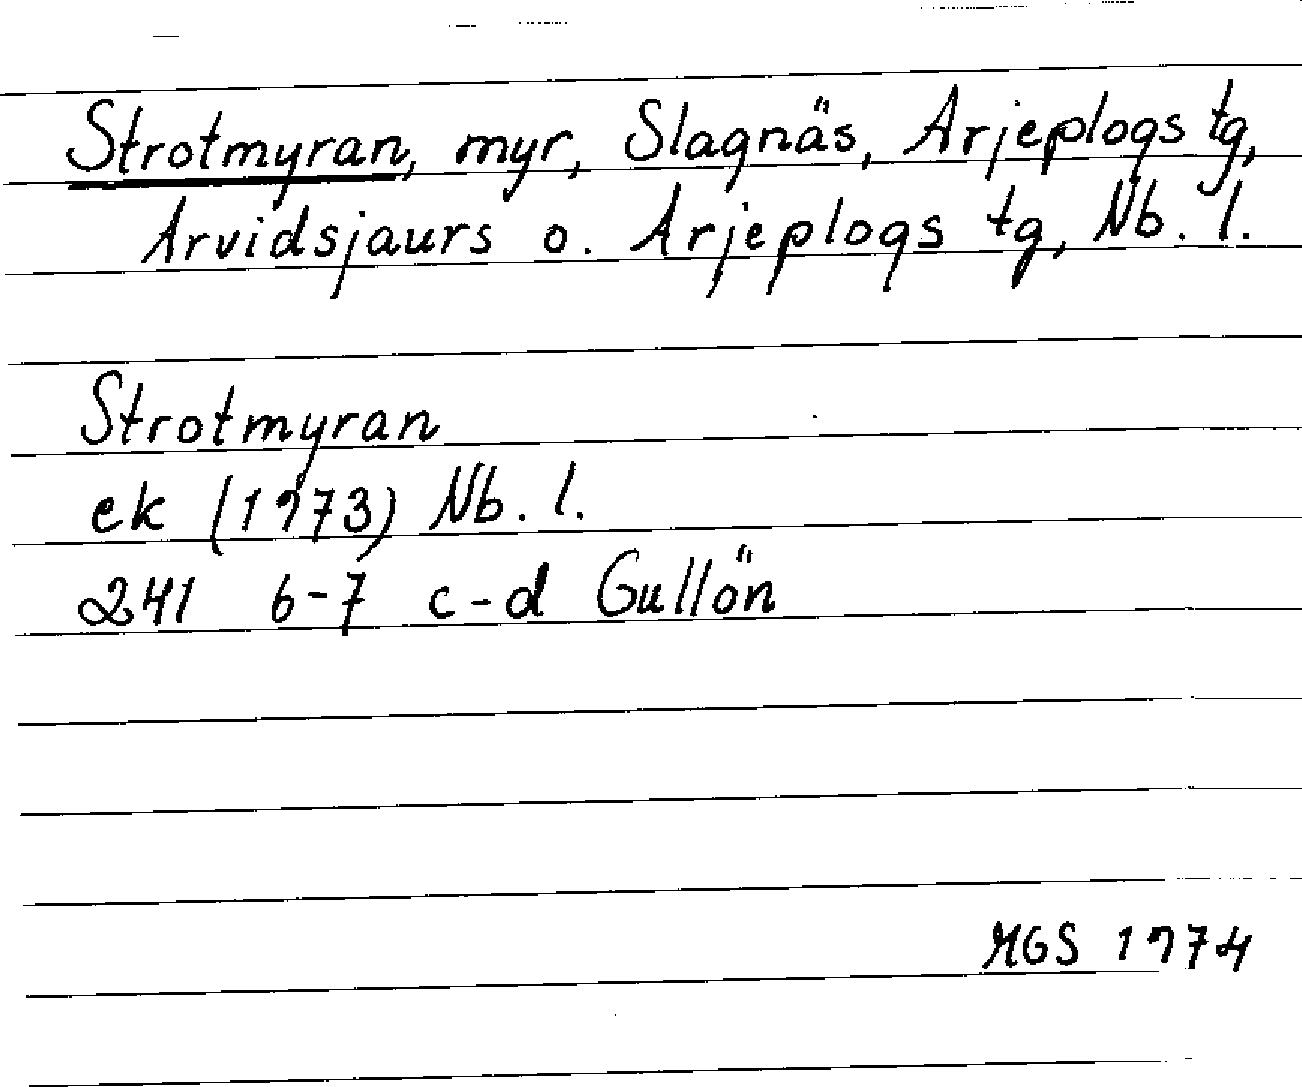 Strotmyran, myr, Slagnäs, Arjeplogs tg,
Arvidsjaurs o. Arjeplogs tg, Nb. l.
Strotmyran
ek (1973) Nb. l.
241 6-7 c-d Gullön
MGS 1974